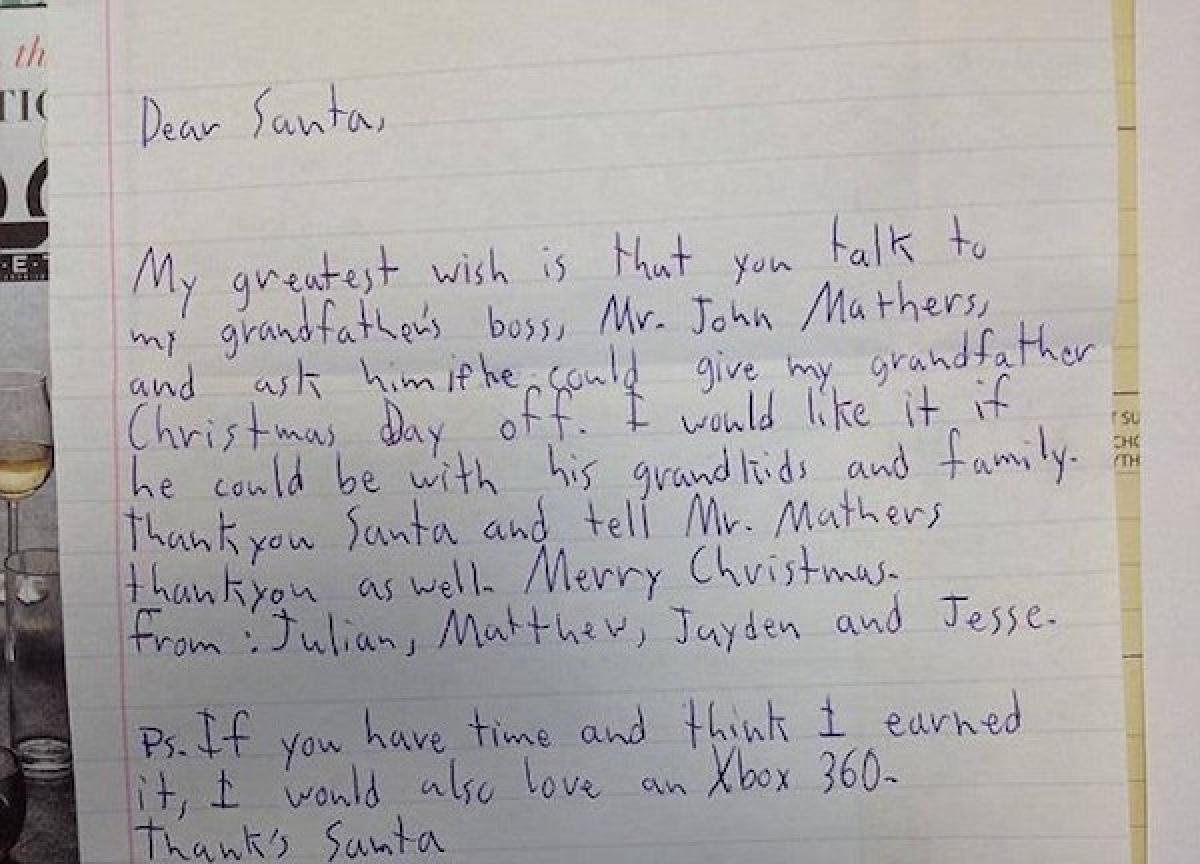 th
TIO
E
Dear Santa,
My greatest wish is that you talk to
my grandfather's boss, Mr. John Mathers,
and ask him if he could give my grandfather
Christmas Day off. I would like it if
he could be with his grandkids and family.
Thankyou Santa and tell Mr. Mathers
thankyou as well. Merry Christmas.
From: Julian, Matthew, Jayden and Jesse.
Ps. If you have time and think I earned
it, I would also love an Xbox 360.
Thank's Santa
SU
CHO
YTH